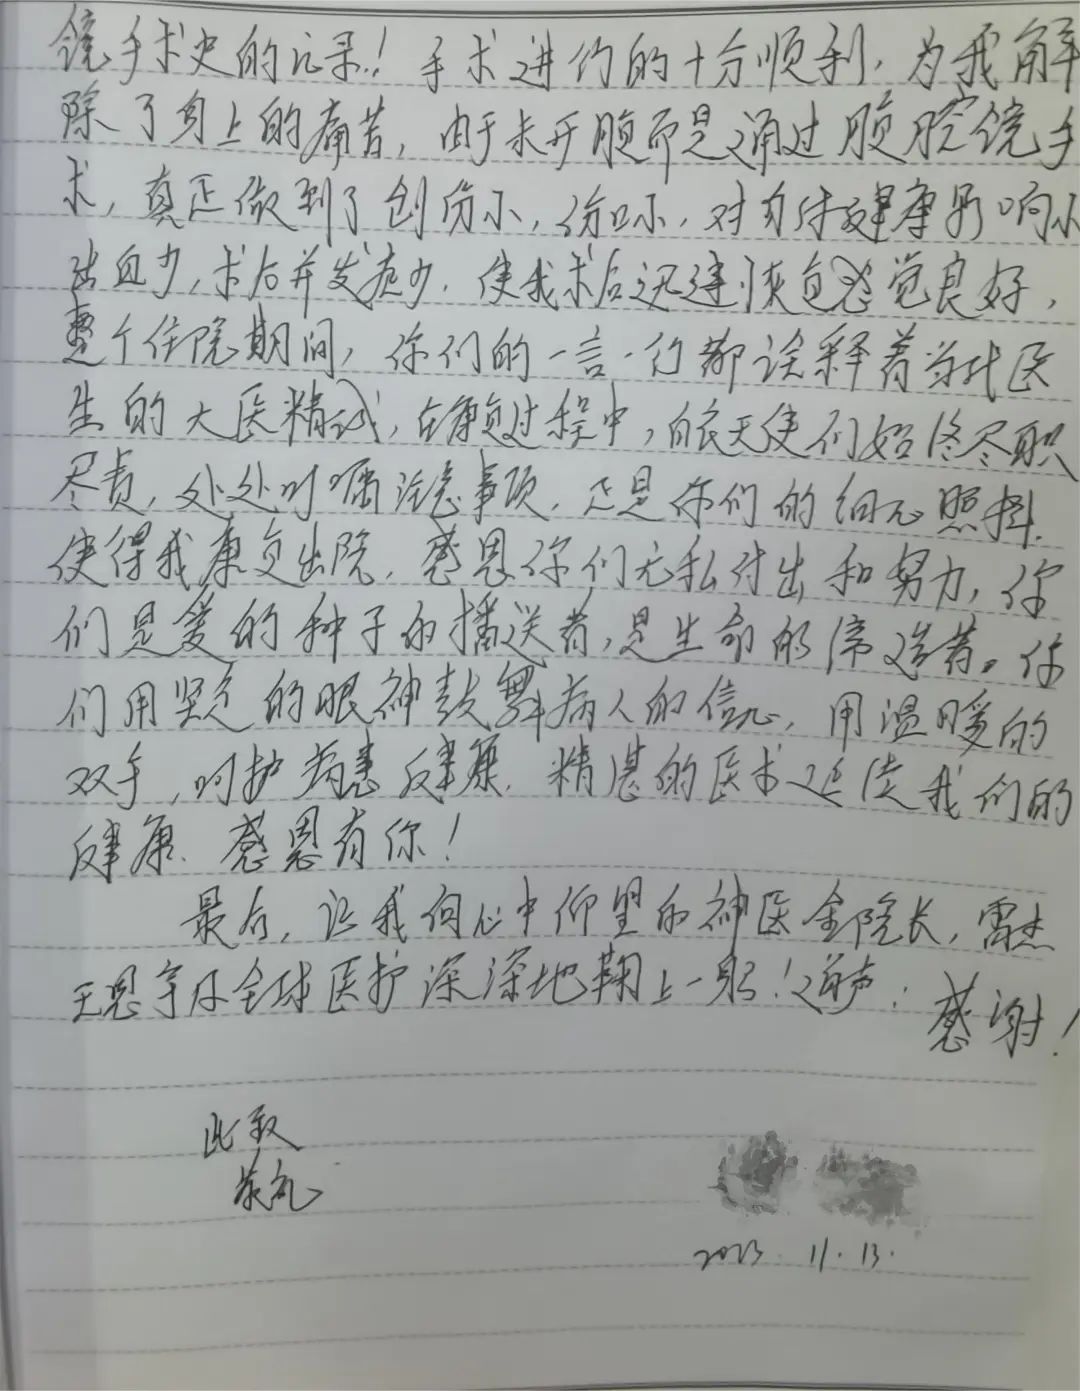 镜手术史的记录！手术进行的十分顺利，为我解
除了身上的痛苦，由于未开腹而是通过腹腔镜手
术，真正做到了创伤小，伤口小，对身体健康影响小
出血少，术后并发症少．使我术后迅速恢复感觉良好，
整个住院期间，你们的一言一行都诠释着当代医
生的大医精诚，在康复过程中，白衣天使们始终尽职
尽责，处处叮嘱注意事项．正是你们的细心照料．
使得我康复出院．感恩你们无私付出和努力，你
们是爱的种子的播送者，是生命的缔造者。你
们用坚定的眼神鼓舞病人的信心，用温暖的
双手，呵护病患健康．精湛的医术延续我们的
健康．感恩有你！
最后，让我向心中仰望的神医金院长，雷杰
王恩宇及全球医护深深地鞠上一躬！道声：感谢！
此致
敬礼
2023．11．13．